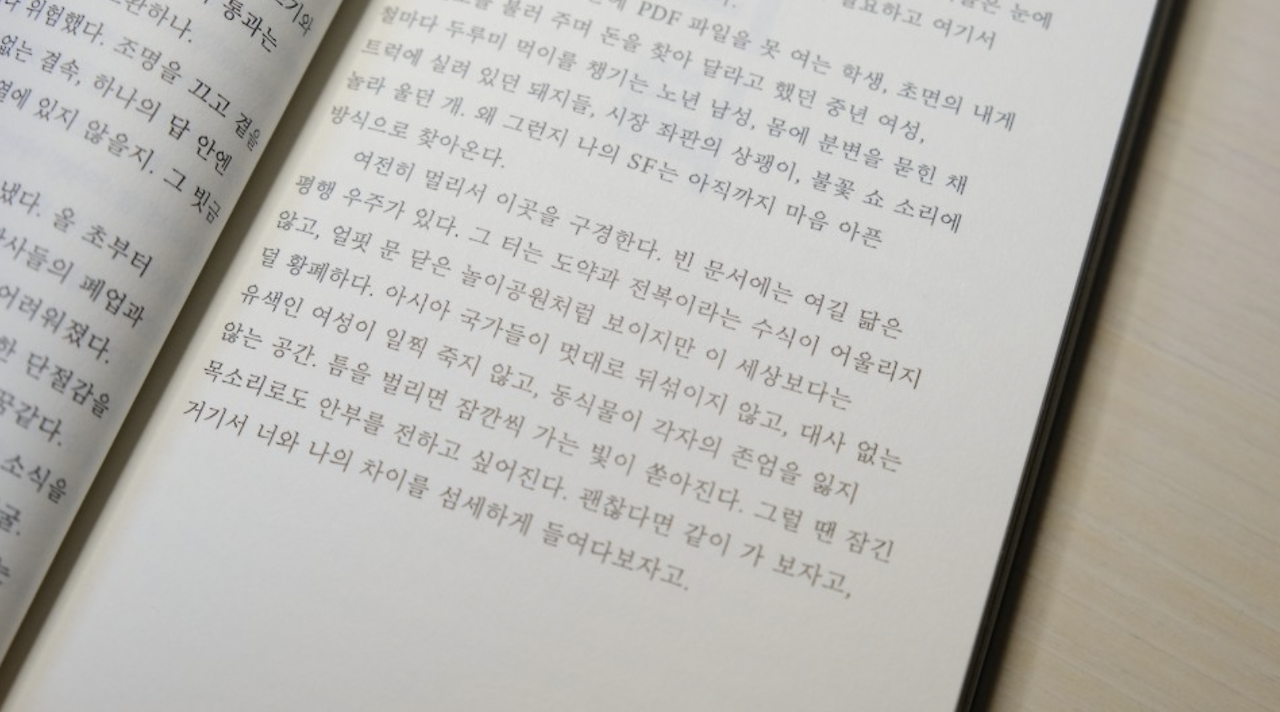 위험했다. 조명을 끄고 곁을
없는 결속, 하나의 답 안엔
곁에 있지 않을지. 그 빗금
냈다. 올 초부터
폐업과
어려워졌다.
단절감을
소식을
통과는
눈에
필요하고 여기서
PDF 파일을 못 여는 학생, 초면의 내게
불러 주며 돈을 찾아 달라고 했던 중년 여성,
철마다 두루미 먹이를 챙기는 노년 남성, 몸에 분변을 묻힌 채
트럭에 실려 있던 돼지들, 시장 좌판의 상괭이, 불꽃 쇼 소리에
놀라 울던 개. 왜 그런지 나의 SF는 아직까지 마음 아픈
방식으로 찾아온다.
여전히 멀리서 이곳을 구경한다. 빈 문서에는 여길 닮은
평행 우주가 있다. 그 터는 도약과 전복이라는 수식이 어울리지
않고, 얼핏 문 닫은 놀이공원처럼 보이지만 이 세상보다는
덜 황폐하다. 아시아 국가들이 멋대로 뒤섞이지 않고, 대사 없는
유색인 여성이 일찍 죽지 않고, 동식물이 각자의 존엄을 잃지
않는 공간. 틈을 벌리면 잠깐씩 가는 빛이 쏟아진다. 그럴 땐 잠긴
목소리로도 안부를 전하고 싶어진다. 괜찮다면 같이 가 보자고,
거기서 너와 나의 차이를 섬세하게 들여다보자고.